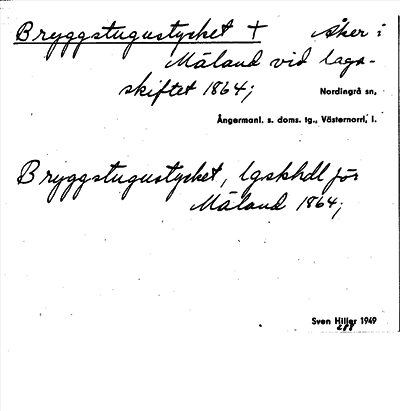 Bryggstugustycket + Åker i
Måland vid laga-
skiftet 1864;
Nordingrå sn,
Ångermanl. s. doms. tg., Västernorrl. l.
Bryggstugustycket, lgskhdl för
Måland 1864;
Sven Hiller 1949